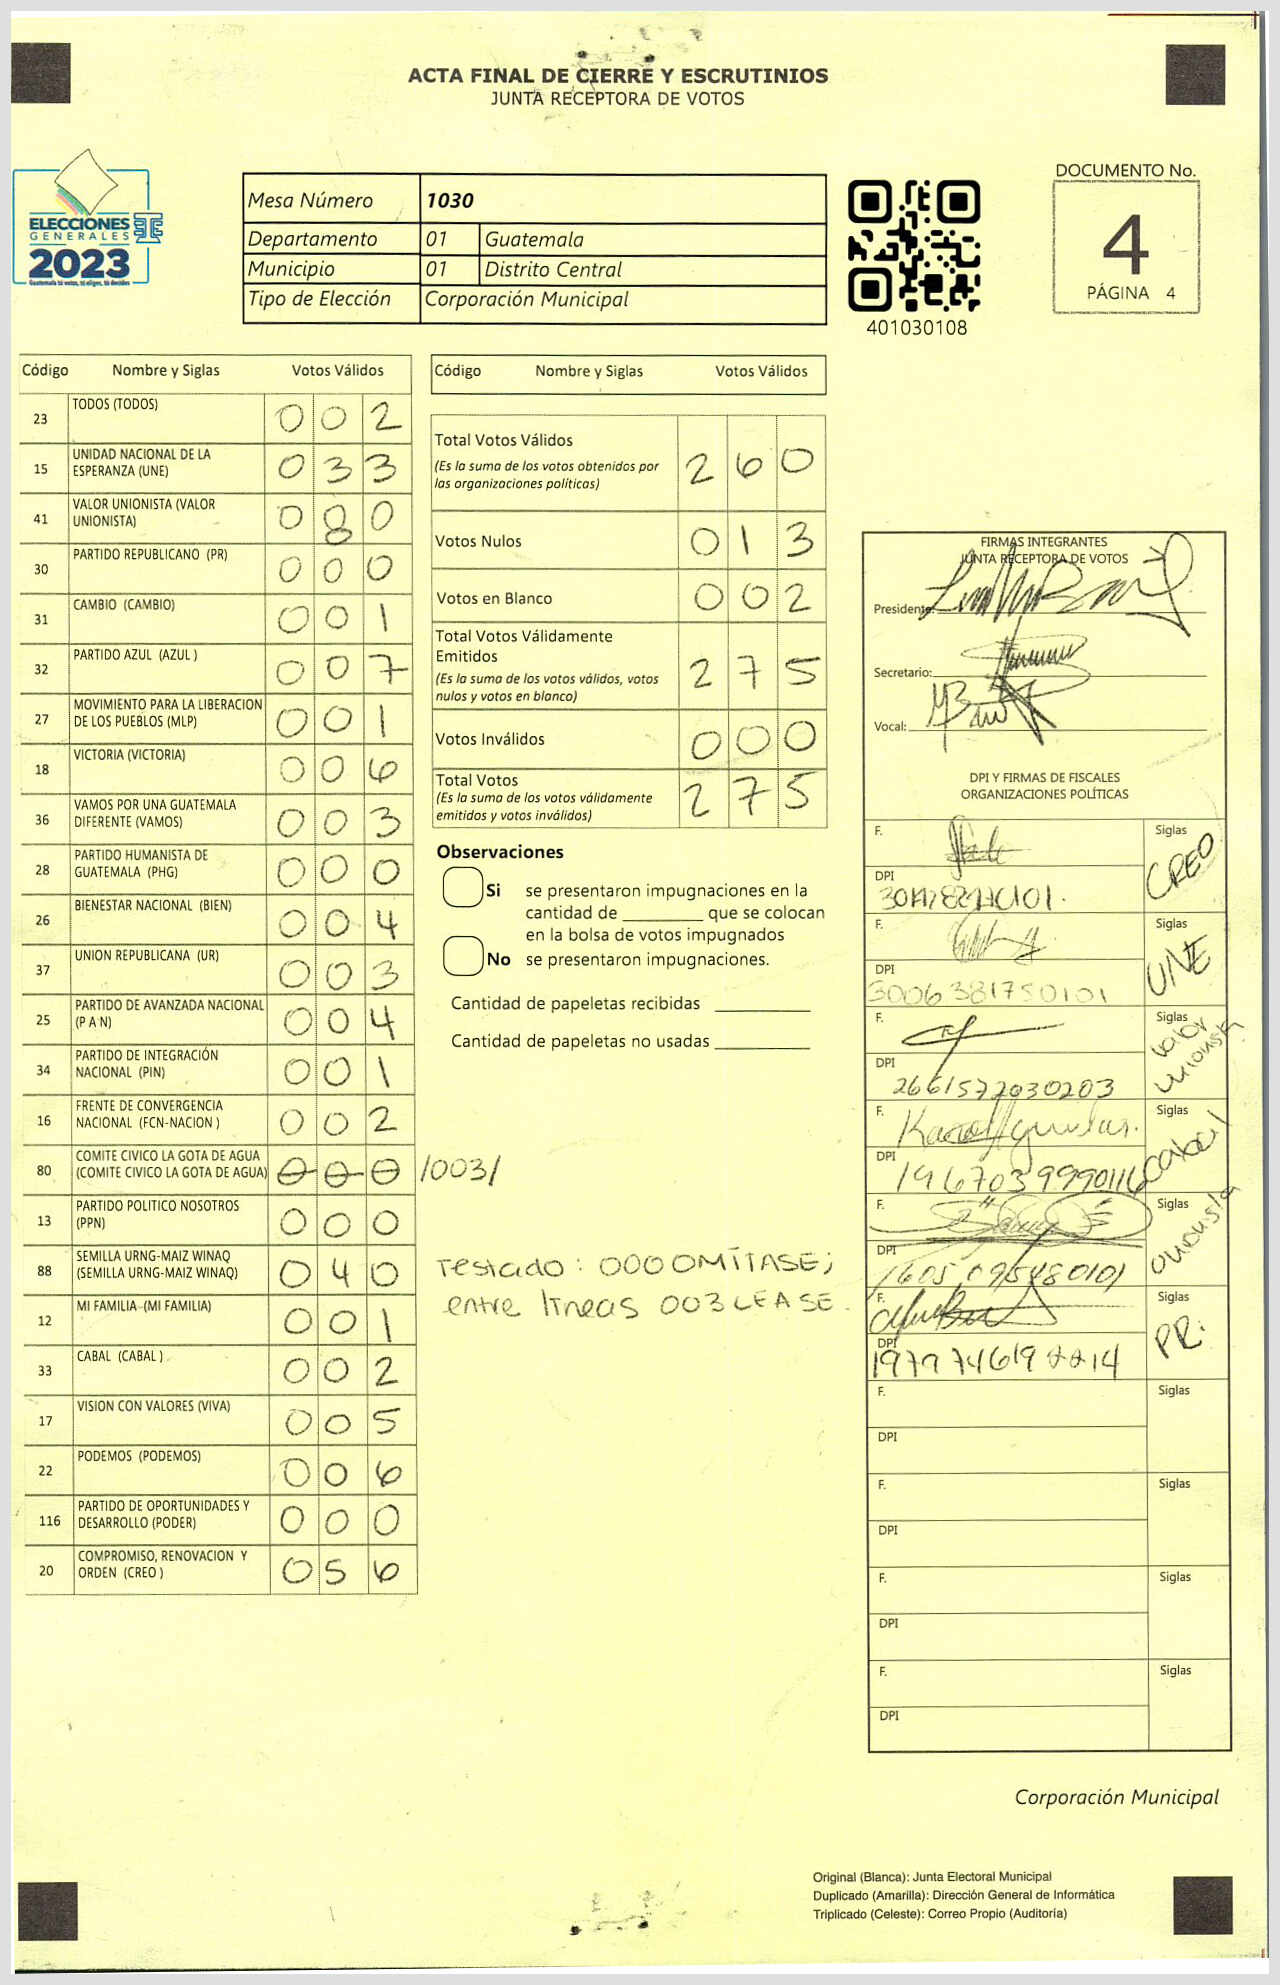 ACTA FINAL DE CIERRE Y ESCRUTINIOS
JUNTA RECEPTORA DE VOTOS
ELECCIONES
GENERALES
2023
Guatemala tú votas, tú eliges, tú decides
Mesa Número 1030
Departamento 01 Guatemala
Municipio 01 Distrito Central
Tipo de Elección Corporación Municipal
401030108
DOCUMENTO No.
4
PÁGINA 4
Código Nombre y Siglas Votos Válidos
23 TODOS (TODOS) 002
15 UNIDAD NACIONAL DE LA
ESPERANZA (UNE) 033
41 VALOR UNIONISTA (VALOR
UNIONISTA) 080
30 PARTIDO REPUBLICANO (PR) 000
31 CAMBIO (CAMBIO) 001
32 PARTIDO AZUL (AZUL ) 007
27 MOVIMIENTO PARA LA LIBERACION
DE LOS PUEBLOS (MLP) 001
18 VICTORIA (VICTORIA) 006
36 VAMOS POR UNA GUATEMALA
DIFERENTE (VAMOS) 003
28 PARTIDO HUMANISTA DE
GUATEMALA (PHG) 000
26 BIENESTAR NACIONAL (BIEN) 004
37 UNION REPUBLICANA (UR) 003
25 PARTIDO DE AVANZADA NACIONAL
(P A N) 004
34 PARTIDO DE INTEGRACIÓN
NACIONAL (PIN) 001
16 FRENTE DE CONVERGENCIA
NACIONAL (FCN-NACION ) 002
80 COMITE CIVICO LA GOTA DE AGUA
(COMITE CIVICO LA GOTA DE AGUA) 000 /003/
13 PARTIDO POLITICO NOSOTROS
(PPN) 000
88 SEMILLA URNG-MAIZ WINAQ
(SEMILLA URNG-MAIZ WINAQ) 040
12 MI FAMILIA (MI FAMILIA) 001
33 CABAL (CABAL ) 002
17 VISION CON VALORES (VIVA) 005
22 PODEMOS (PODEMOS) 006
116 PARTIDO DE OPORTUNIDADES Y
DESARROLLO (PODER) 000
20 COMPROMISO, RENOVACION Y
ORDEN (CREO ) 056
Código Nombre y Siglas Votos Válidos
Total Votos Válidos 260
(Es la suma de los votos obtenidos por
las organizaciones políticas)
Votos Nulos 013
Votos en Blanco 002
Total Votos Válidamente
Emitidos 275
(Es la suma de los votos válidos, votos
nulos y votos en blanco)
Votos Inválidos 000
Total Votos 275
(Es la suma de los votos válidamente
emitidos y votos inválidos)
Observaciones
Si se presentaron impugnaciones en la
cantidad de ________ que se colocan
en la bolsa de votos impugnados
No se presentaron impugnaciones.
Cantidad de papeletas recibidas ________
Cantidad de papeletas no usadas ________
Testado: 000 OMÍTASE;
entre líneas 003 LEASE.
FIRMAS INTEGRANTES
JUNTA RECEPTORA DE VOTOS
Presidente:
Secretario:
Vocal:
DPI Y FIRMAS DE FISCALES
ORGANIZACIONES POLÍTICAS
F. Siglas CREO
DPI
F. Siglas UNE
DPI 3006381750101
F. Siglas Valor Unionista
DPI 2661577030203
F. Siglas Cabal
DPI 1967039990116
F. Siglas Unionista
DPI
F. Siglas PR.
DPI
F. Siglas
DPI
F. Siglas
DPI
F. Siglas
DPI
F. Siglas
DPI
Corporación Municipal
Original (Blanca): Junta Electoral Municipal
Duplicado (Amarilla): Dirección General de Informática
Triplicado (Celeste): Correo Propio (Auditoría)